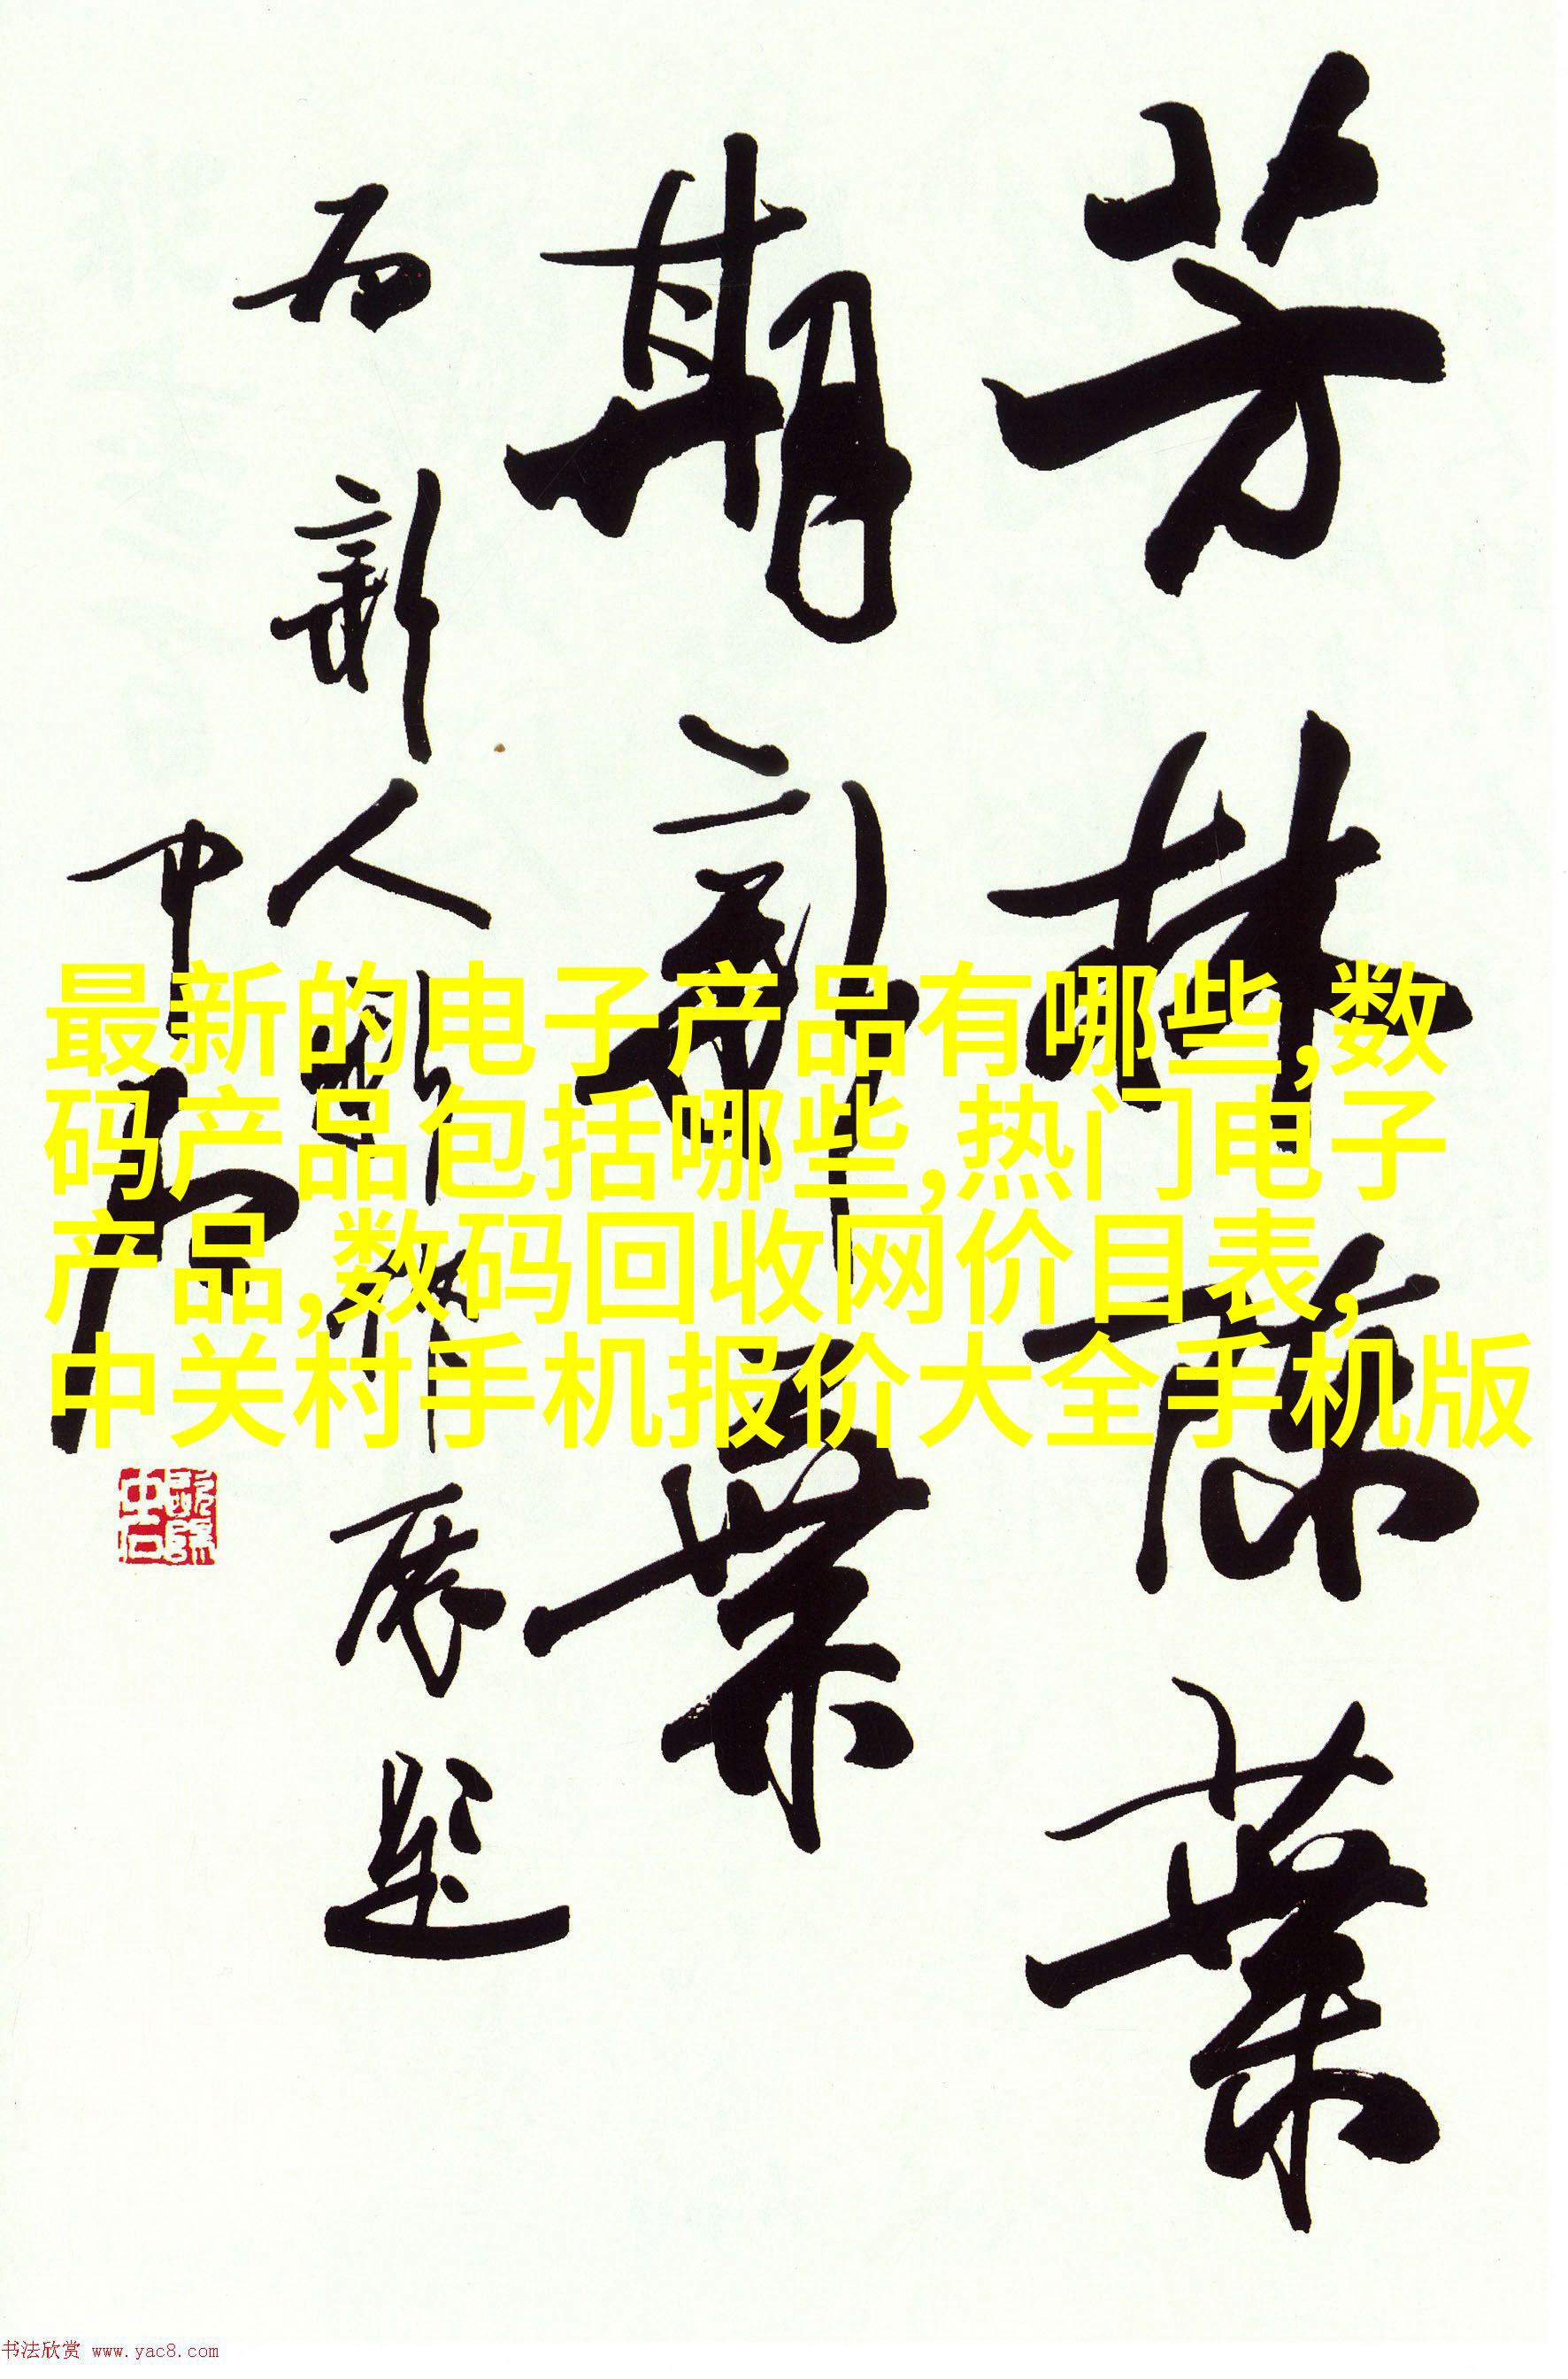 芳林葉
期新葉
新人作展題
中石
最新的电子产品有哪些,数
码产品包括哪些,热门电子
产品,数码回收网价目表,
中关村手机报价大全手机版
书法欣赏 www.yac8.com